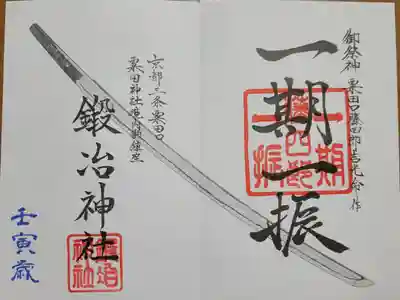 御祭神 粟田口藤四郎吉光命 作
一期一振
一期
藤四郎
一振
京都三条粟田口
粟田神社境内鎮座
鍛冶神社
鍛冶
神社
壬寅歳